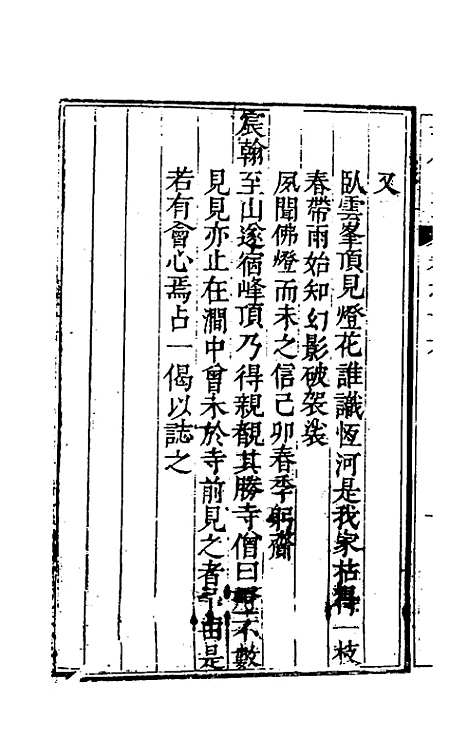 又
臥雲峯頂見燈花誰識恆河是我家拈得一枝
春帶雨始知幻影破袈裟
夙聞佛燈而未之信己卯春季躬齎
宸翰至山遂宿峰頂乃得親覩其勝寺僧曰燈不數
見見亦止在澗中曾未於寺前見之者由是
若有會心焉占一偈以誌之